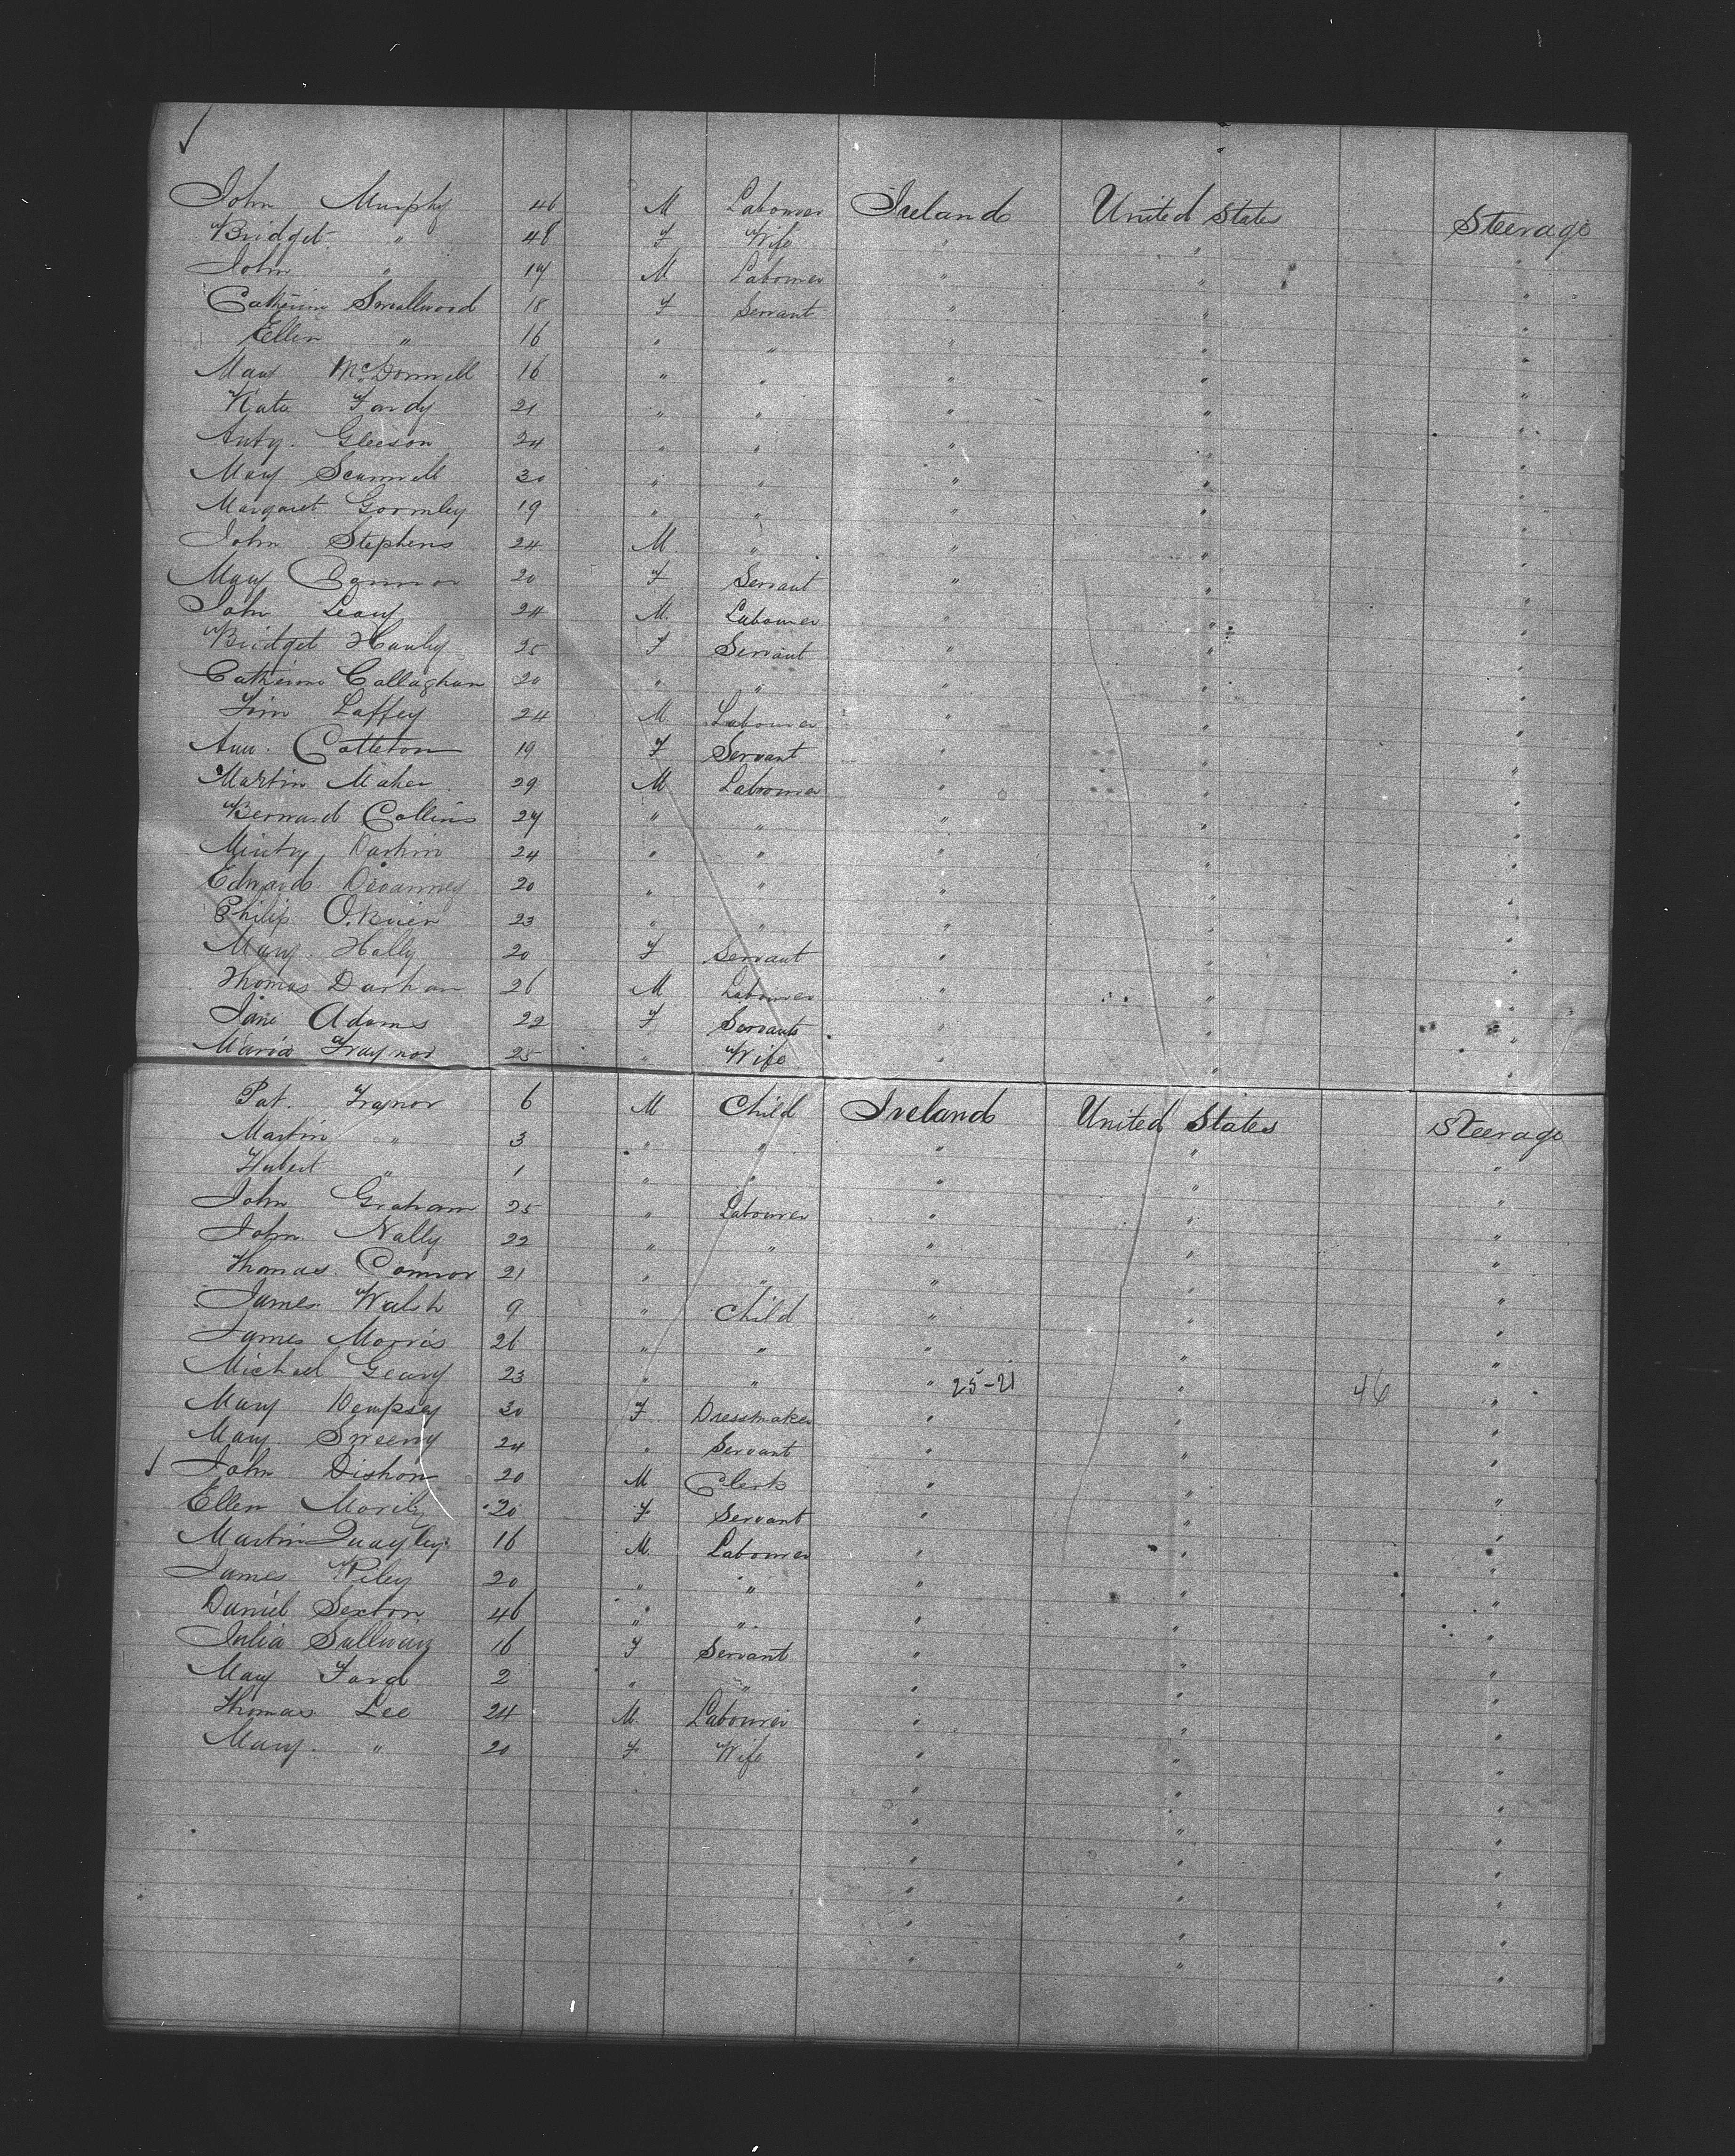 John Murphy 46 M Labourer Ireland United States Steerage
Bridget " 48 F Wife " " "
John " 17 M Labourer " " "
Catherine Smallwood 18 F Servant " " "
Ellen " 16 " " " " "
Mary McDonnell 16 " " " " "
Kate Fardy 21 " " " " "
Anty. Gleeson 24 " " " " "
Mary Scannell 30 " " " " "
Margaret Goomley 19 " " " " "
John Stephens 24 M " " " "
Mary Connor 20 F Servant " " "
John Leary 24 M. Labourer " " "
Bridget Hanly 25 F Servant " " "
Catherine Callaghan 20 " " " " "
Tim Laffey 24 M. Labourer " " "
Ann. Cottleton 19 F Servant " " "
Martin Maher 29 M Labourer " " "
Bernard Collins 27 " " " " "
24 " " " " "
Edward Devanney 20 " " " " "
Philip O.Brien 23 " " " " "
Mary Hally 20 F Servant " " "
Thomas Durhan 26 M Labourer " " "
Jane Adams 22 F Servant " " "
Maria Traynor 25 " Wife " " "
Pat. Traynor 6 M Child Ireland United States Steerage
Martin " 3 " " " " "
Hubert " 1 " " " " "
John Graham 25 " Labourer " " "
John Nally 22 " " " " "
Thomas Connor 21 " " " " "
James Walsh 9 " Child " " "
James Morris 26 " " " " "
Michael Geary 23 " " " 25-21 " 46 "
Mary Dempsey 30 F Dressmaker " " "
Mary Sweeny 24 " Servant " " "
John Dishon 20 M Clerk " " "
Ellen 20 F Servant " " "
Martin Quayley 16 M. Labourer " " "
James Riley 20 " " " " "
Daniel Sexton 46 " " " " "
Julia Sullivan 16 F Servant " " "
Mary Ford 2 " " " " "
Thomas Lee 24 M. Labourer " " "
Mary. " 20 F Wife " " "
" " "
" " "
" " "
" " "
" " "
" " "